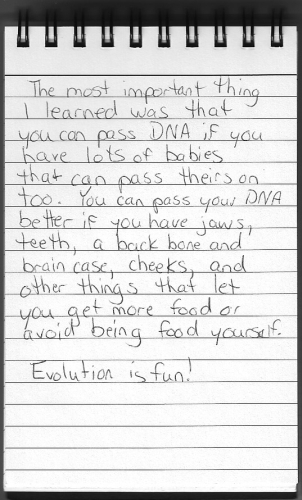 The most important thing
I learned was that
you can pass DNA if you
have lots of babies
that can pass theirs on
too. You can pass your DNA
better if you have jaws,
teeth, a back bone and
brain case, cheeks, and
other things that let
you get more food or
avoid being food yourself.
Evolution is fun!